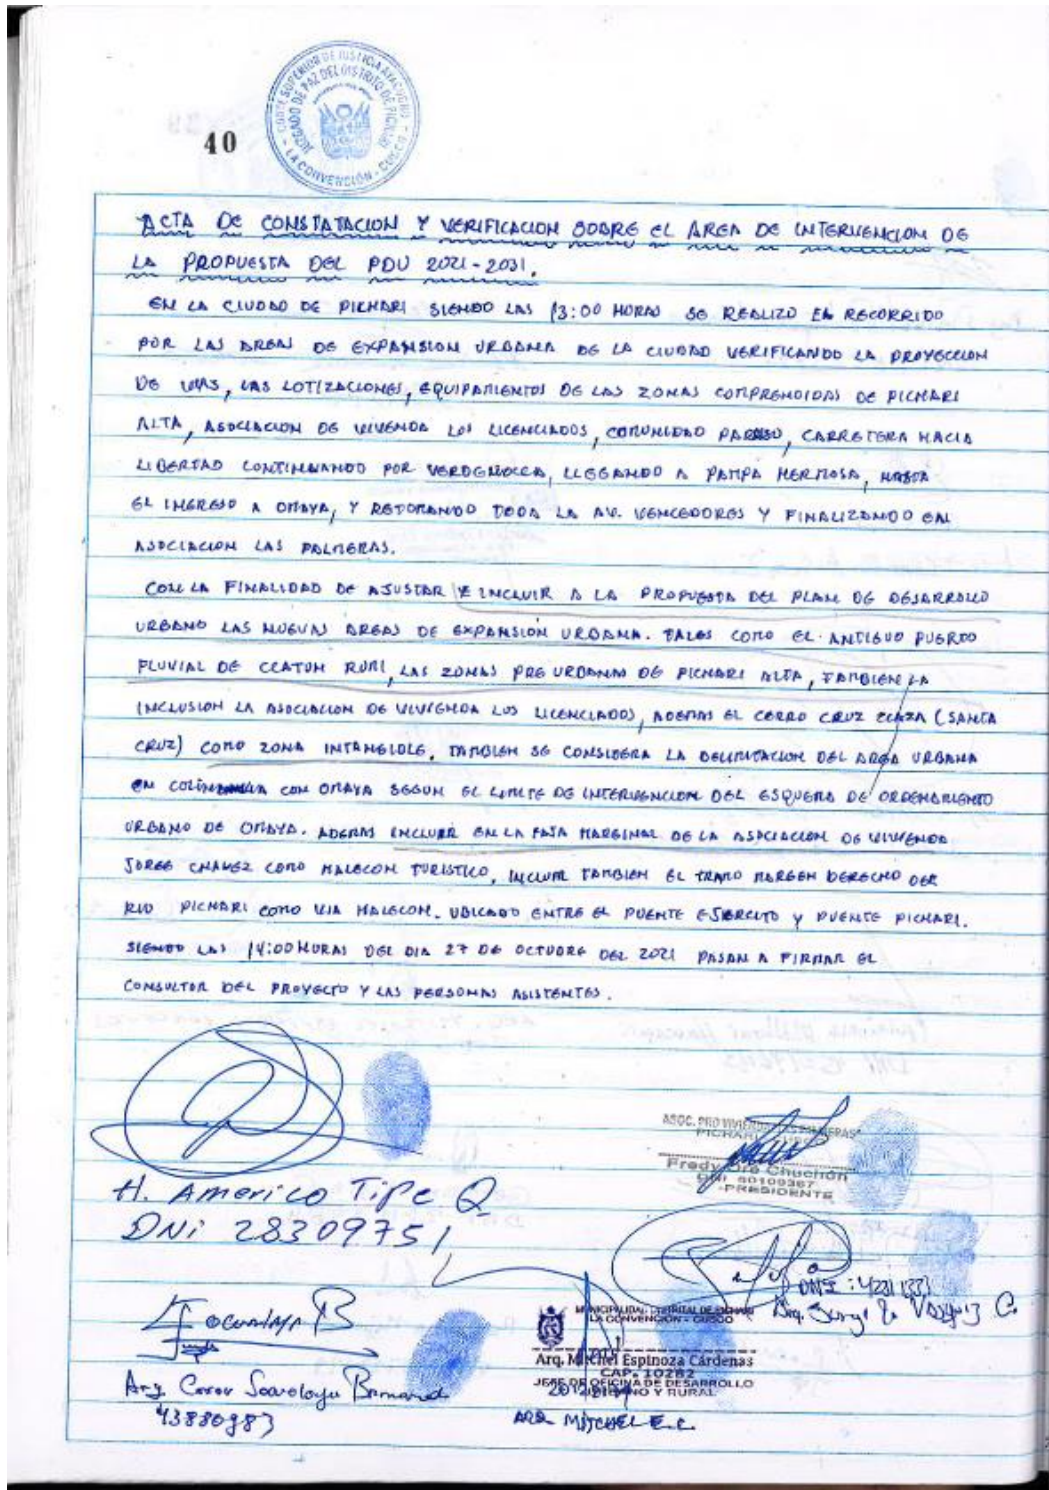 CORTE SUPERIOR DE JUSTICIA AYACUCHO
JUZGADO DE PAZ DEL DISTRITO DE PICHARI
LA CONVENCIÓN - CUSCO
40
ACTA DE CONSTATACION Y VERIFICACION SOBRE EL AREA DE INTERVENCION DE
LA PROPUESTA DEL PDU 2021-2031.
EN LA CIUDAD DE PICHARI SIENDO LAS 13:00 HORAS SE REALIZO EL RECORRIDO
POR LAS AREAS DE EXPANSION URBANA DE LA CIUDAD VERIFICANDO LA PROYECCION
DE VIAS, LAS LOTIZACIONES, EQUIPAMIENTOS DE LAS ZONAS COMPRENDIDAS DE PICHARI
ALTA, ASOCIACION DE VIVIENDA LOS LICENCIADOS, COMUNIDAD PARAISO, CARRETERA HACIA
LIBERTAD CONTINUANDO POR LLEGANDO A PAMPA HERMOSA, HASTA
EL INGRESO A OMAYA, Y RETOMANDO TODA LA AV. VENCEDORES Y FINALIZANDO EN
ASOCIACION LAS PALMERAS.
CON LA FINALIDAD DE AJUSTAR E INCLUIR A LA PROPUESTA DEL PLAN DE DESARROLLO
URBANO LAS NUEVAS AREAS DE EXPANSION URBANA. TALES COMO EL ANTIGUO PUERTO
FLUVIAL DE CCATUN RUMI, LAS ZONAS PRE URBANAS DE PICHARI ALTA, TAMBIEN LA
INCLUSION LA ASOCIACION DE VIVIENDA LOS LICENCIADOS, ADEMAS EL CERRO CRUZ (SANTA
CRUZ) COMO ZONA INTANGIBLE, TAMBIEN SE CONSIDERA LA DELIMITACION DEL AREA URBANA
EN COLINDANCIA CON OMAYA SEGUN EL LIMITE DE INTERVENCION DEL ESQUEMA DE ORDENAMIENTO
URBANO DE OMAYA. ADEMAS INCLUIR EN LA FAJA MARGINAL DE LA ASOCIACION DE VIVIENDA
JORGE CHAVEZ COMO MALECON TURISTICO, INCLUIR TAMBIEN EL TRAMO MARGEN DERECHO DEL
RIO PICHARI COMO VIA MALECON. UBICADO ENTRE EL PUENTE EJERCITO Y PUENTE PICHARI.
SIENDO LAS 14:00 HORAS DEL DIA 27 DE OCTUBRE DEL 2021 PASAN A FIRMAR EL
CONSULTOR DEL PROYECTO Y LAS PERSONAS ASISTENTES.
H. Americo Tipe Q
DNi 28309751
ASOC. PRO VIVIENDA "LAS PALMERAS"
PICHARI - CUSCO
Fredy Ore Chuchón
DNI 80109367
-PRESIDENTE
DNI: 42811333
Arq.
Arq.
43880983
MUNICIPALIDAD DISTRITAL DE PICHARI
LA CONVENCIÓN - CUSCO
Arq. Mitchel Espinoza Cárdenas
CAP. 10282
JEFE DE OFICINA DE DESARROLLO
URBANO Y RURAL
ARQ MITCHEL E.C.